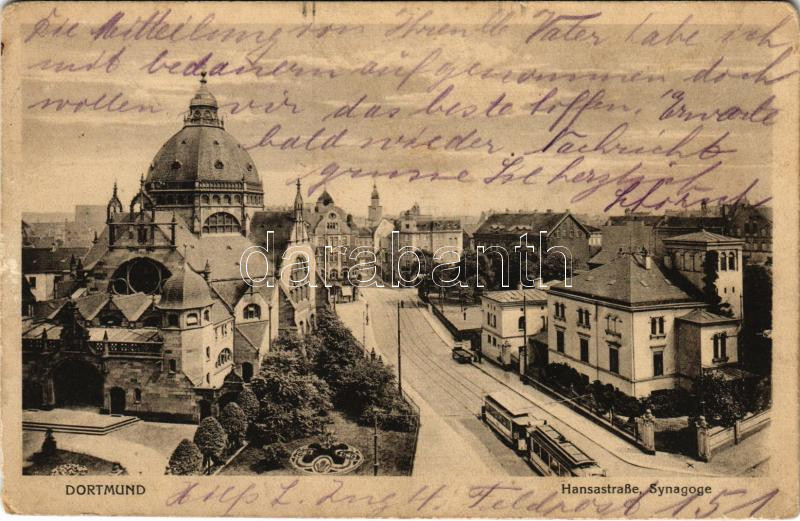 Die Mitteilung von Ihrem Vater habe ich
mit bedauern aufgenommen doch
wollen wir das beste hoffen. Erwarte
bald wieder Nachricht
herzlich
darabanth
DORTMUND
Hansastraße, Synagoge
Feldpost 151